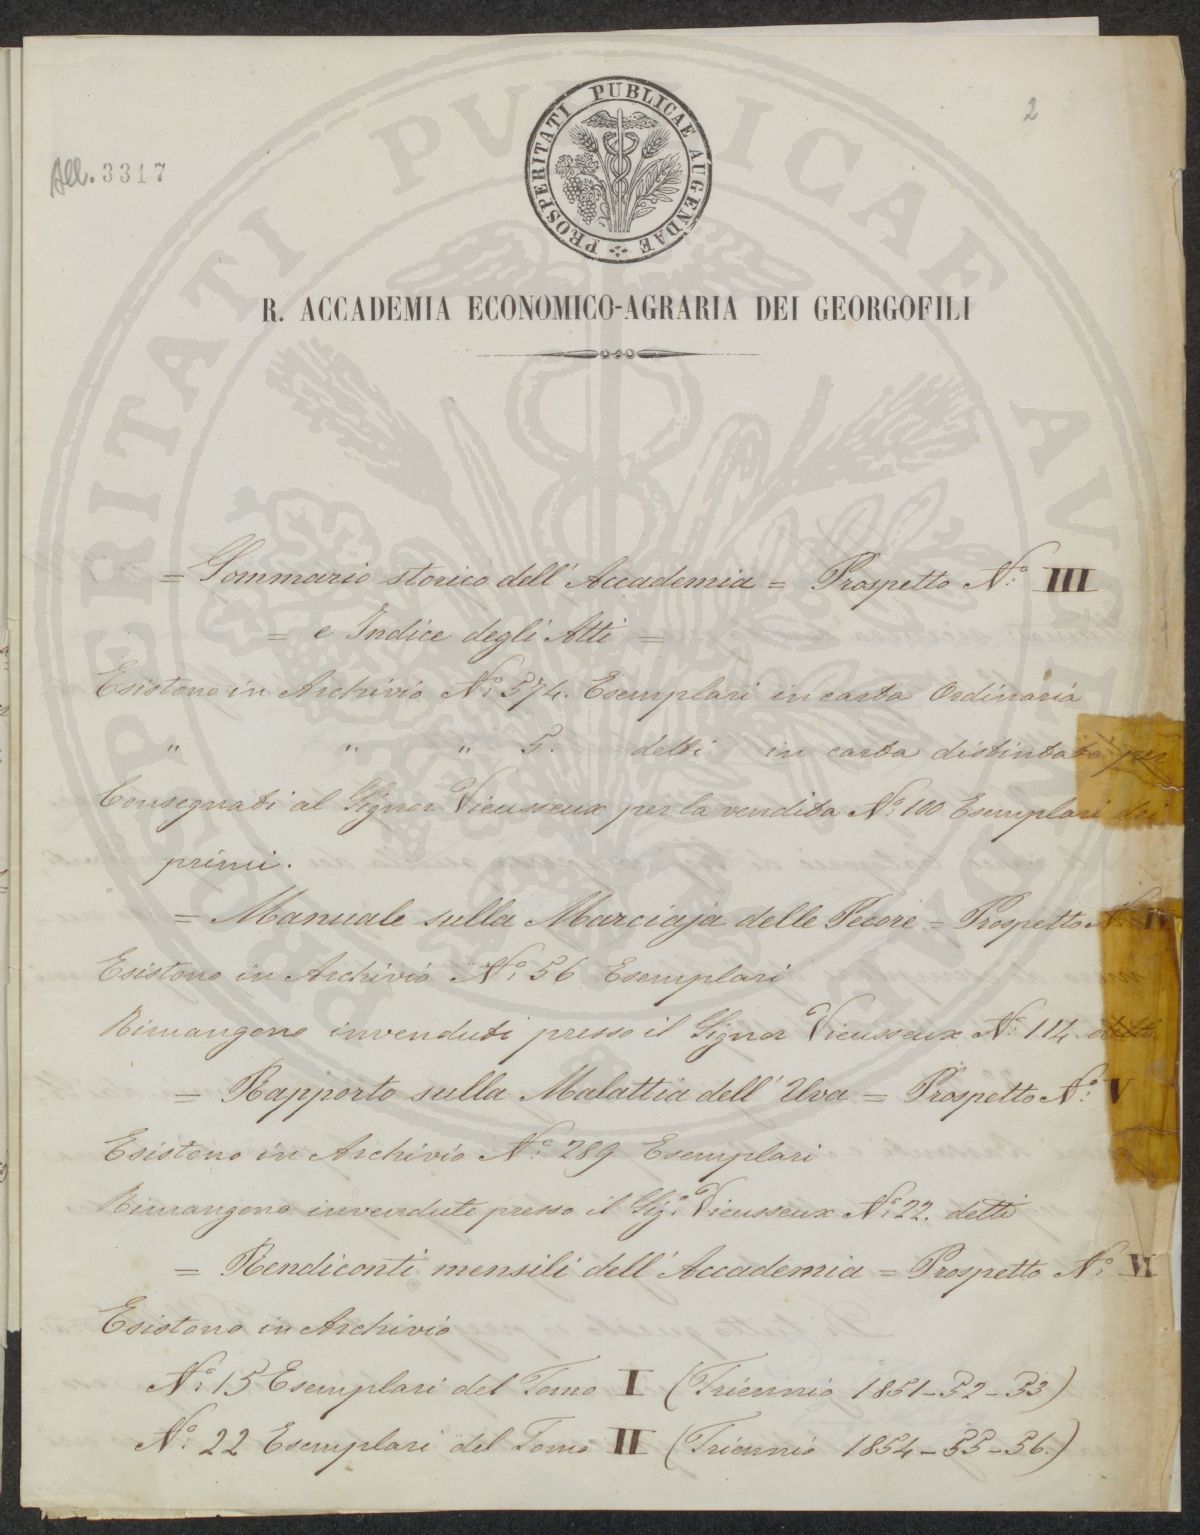 2
All. 3317
PROSPERITATI PUBLICAE AUGENDAE
R. ACCADEMIA ECONOMICO-AGRARIA DEI GEORGOFILI
= Sommario storico dell' Accademia = Prospetto N.o III
= e Indice degli Atti =
Esistono in Archivio N.o 574. Esemplari in carta Ordinaria
" " " 5. detti in carta distinta
Consegnati al Signor Vieusseux per la vendita N.o 100 Esemplari dei
primi.
= Manuale sulla Marciaja delle Pecore = Prospetto N.o IV
Esistono in Archivio N.o 56 Esemplari
Rimangono invenduti presso il Signor Vieusseux N.o 114. detti.
= Rapporto sulla Malattia dell' Uva = Prospetto N.o V
Esistono in Archivio N.o 289 Esemplari
Rimangono invendute presso il Sig.r Vieusseux N.o 22. detti
= Rendiconti mensili dell' Accademia = Prospetto N.o VI
Esistono in Archivio
N.o 15 Esemplari del Tomo I (Triennio 1851-52-53)
N.o 22 Esemplari del Tomo II (Triennio 1854-55-56.)